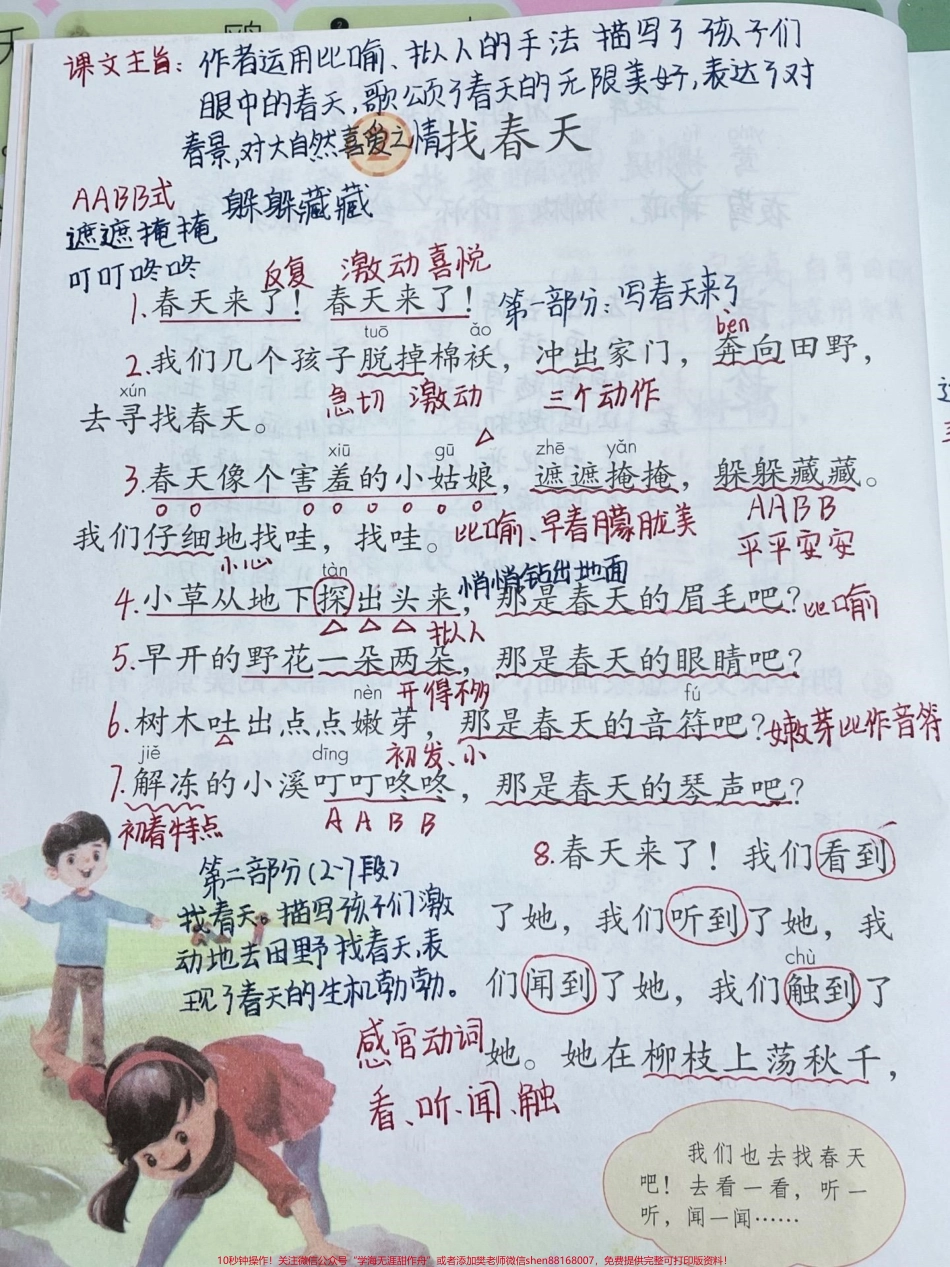 课文主旨：作者运用比喻、拟人的手法 描写了孩子们
眼中的春天，歌颂了春天的无限美好，表达了对
春景，对大自然喜爱之情
2 找春天
AABB式 躲躲藏藏
遮遮掩掩
叮叮咚咚
反复 激动喜悦
1.春天来了！春天来了！ 第一部分、写春天来了
tuō ǎo bèn
2.我们几个孩子脱掉棉袄，冲出家门，奔向田野，
xún 急切 激动 三个动作
去寻找春天。
xiū gū zhē yǎn
3.春天像个害羞的小姑娘，遮遮掩掩，躲躲藏藏。
比喻、早春朦胧美 AABB
我们仔细地找哇，找哇。 平平安安
小心 tàn 悄悄钻出地面
4.小草从地下探出头来，那是春天的眉毛吧？比喻
拟人
5.早开的野花一朵两朵，那是春天的眼睛吧？
nèn 开得不多 fú
6.树木吐出点点嫩芽，那是春天的音符吧？嫩芽比作音符
jiě dīng 初发、小
7.解冻的小溪叮叮咚咚，那是春天的琴声吧？
初春特点 AABB
8.春天来了！我们看到
了她，我们听到了她，我
chù
们闻到了她，我们触到了
她。她在柳枝上荡秋千，
第二部分（2-7段）
找春天。描写孩子们激
动地去田野找春天，表
现了春天的生机勃勃。
感官动词
看、听、闻、触
我们也去找春天
吧！去看一看，听一
听，闻一闻……
10秒钟操作！关注微信公众号“学海无涯甜作舟”或者添加樊老师微信shen88168007，免费提供完整可打印版资料！